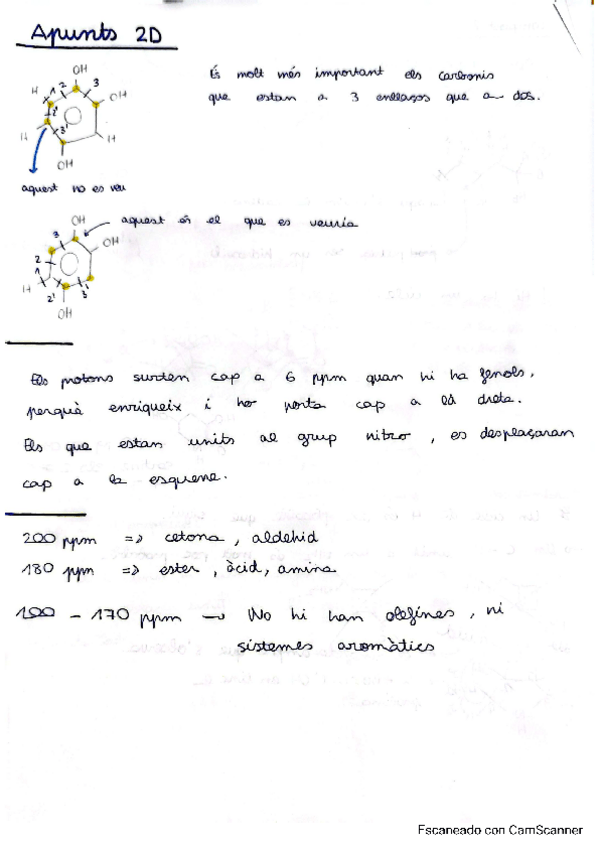 Apunts 2D
OH
H 1 2 3
OH
És molt més important els carbonis
que estan a 3 enllaços que a dos.
2'
3'
H
H
OH
aquest no es veu
OH
aquest és el que es veuria
3
OH
2
1
H
2' 3'
OH
Els protons surten cap a 6 ppm quan hi ha fenols,
perquè enriqueix i ho porta cap a la dreta.
Els que estan units al grup nitro, es desplaçaran
cap a la esquerre.
200 ppm => cetona, aldehid
180 ppm => ester, àcid, amina
100 - 170 ppm → No hi han olefines, ni
sistemes aromàtics
Escaneado con CamScanner